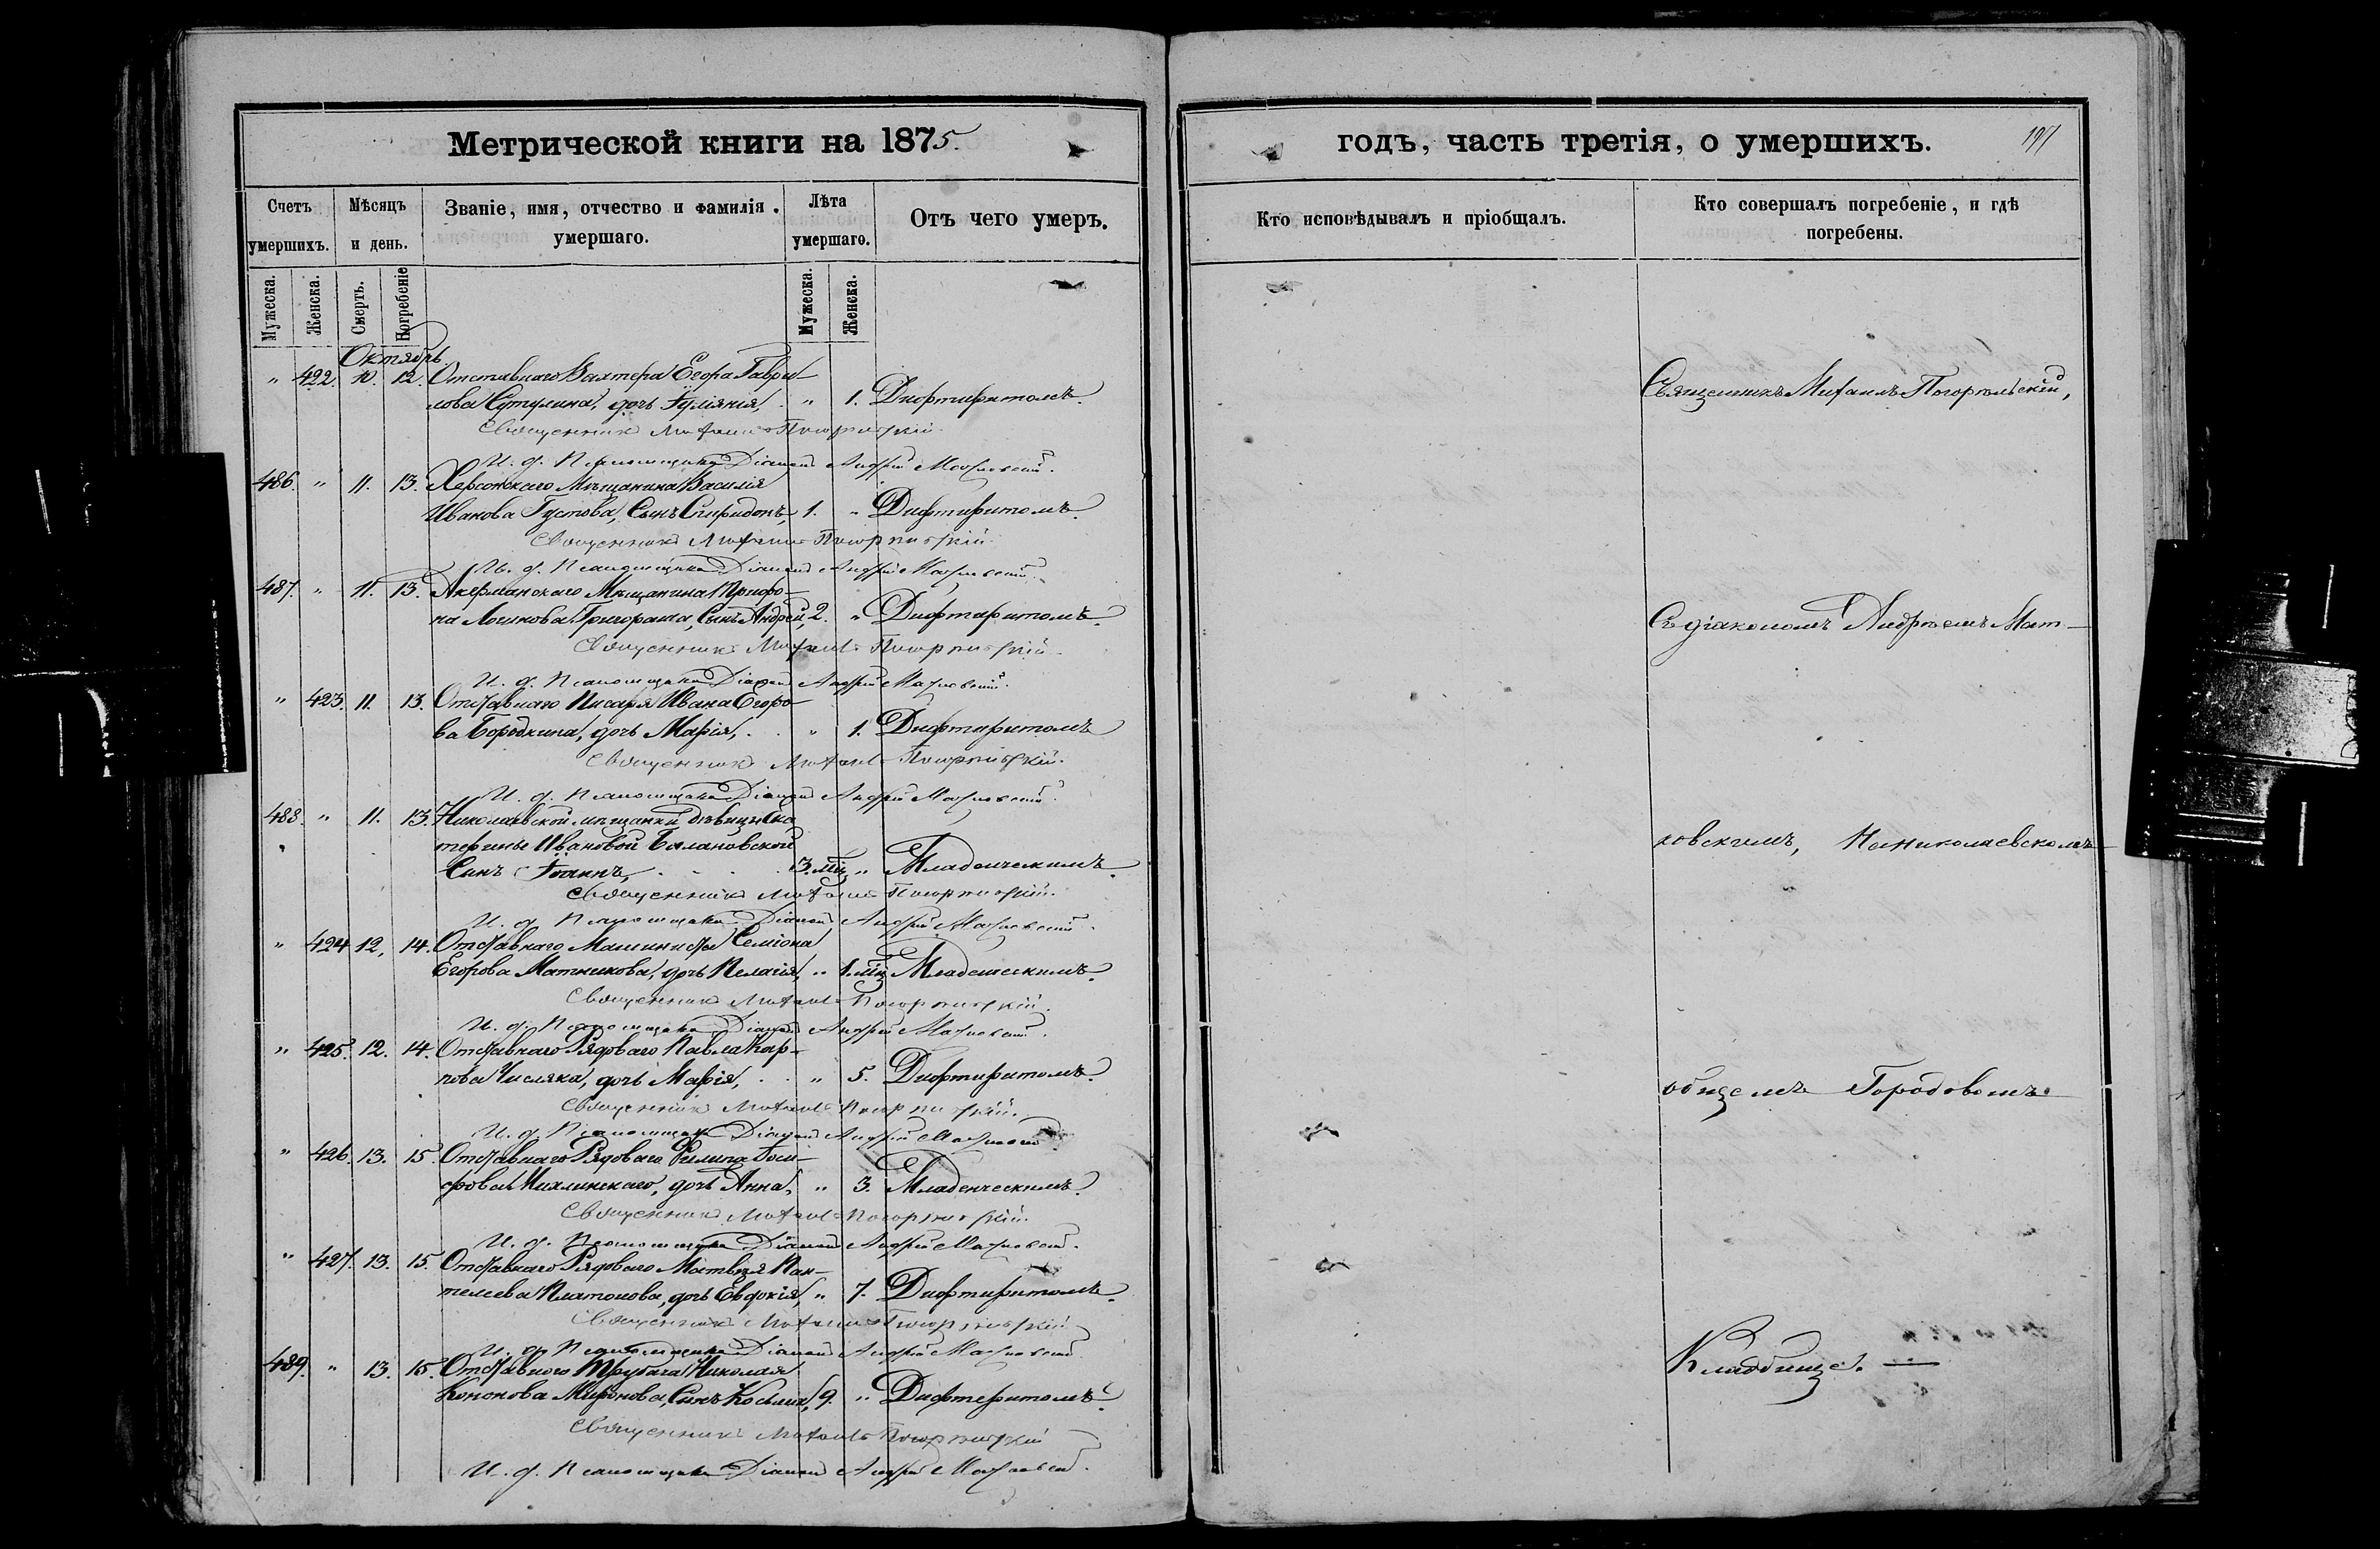 Метрической книги на 1875.
годъ, часть третія, о умершихъ.
197
Счетъ умершихъ.
Мѣсяцъ и день.
Званіе, имя, отчество и фамилія умершаго.
Лѣта умершаго.
Отъ чего умеръ.
Кто исповѣдывалъ и пріобщалъ.
Кто совершалъ погребеніе, и гдѣ погребены.
Мужеска.
Женска.
Смерть.
Погребеніе
Мужеска.
Женска.
Октябрь
" 422. 10. 12. Отставнаго Вахтера Егора Гаври-
лова Сутулина, дочь Іуліанія, " 1. Дифтиритомъ.
Священникъ Михаилъ Погорѣльскій
И. д. Псаломщика Діаконъ Андрей
486. " 11. 13. Херсонскаго Мѣщанина Василія
Иванова Густова, Сынъ Спиридонъ, 1. " Дифтиритомъ.
Священникъ Михаилъ Погорѣльскій
И. д. Псаломщика Діаконъ Андрей
487. " 11. 13. Акерманскаго Мѣщанина
Григораша, Сынъ Андрей, 2. " Дифтаритомъ.
Священникъ Михаилъ Погорѣльскій
И. д. Псаломщика Діаконъ Андрей
" 423. 11. 13. Отставнаго Писаря Ивана Егоро-
ва Бородкина, дочь Марія, " 1. Дифтаритомъ
Священникъ Михаилъ Погорѣльскій.
И. д. Псаломщика Діаконъ Андрей
488. " 11. 13. Николаевской мѣщанки дѣвицы Ека
терины Ивановой Балановской
Сынъ Іоаннъ, 3. мц. " Младенческимъ.
Священникъ Михаилъ Погорѣльскій.
И. д. Псаломщика Діаконъ Андрей
" 424 12. 14. Отставнаго Машиниста Семіона
Егорова Матникова, дочь Пелагія, " 1. мц Младенческимъ.
Священникъ Михаилъ Погорѣльскій.
И. д. Псаломщика Діаконъ Андрей
" 425. 12. 14. Отставнаго Рядоваго Павла Кар-
пова Числяка, дочь Марія, " 5. Дифтиритомъ.
Священникъ Михаилъ Погорѣльскій.
И. д. Псаломщика Діаконъ Андрей
" 426. 13. 15. Отставнаго Рядоваго Филипа Іоси-
фова Михлинскаго, дочь Анна, " 3. Младенческимъ.
Священникъ Михаилъ Погорѣльскій.
И. д. Псаломщика Діаконъ Андрей
" 427. 13. 15. Отставнаго Рядоваго Матвѣя Пан-
телеева Платонова, дочь Евдокія, " 7. Дифтиритомъ.
Священникъ Михаилъ Погорѣльскій
И. д. Псаломщика Діаконъ Андрей
489. " 13. 15. Отставнаго Трубача Николая
Кононова Миронова, Сынъ Косьма, 9. " Дифтеритомъ.
Священникъ Михаилъ Погорѣльскій
И. д. Псаломщика Діаконъ Андрей
Священникъ Михаилъ Погорѣльскій,
Съ діакономъ Андреемъ Мат-
ковскимъ, На Николаевскомъ
общемъ Городовомъ
Кладбище. —